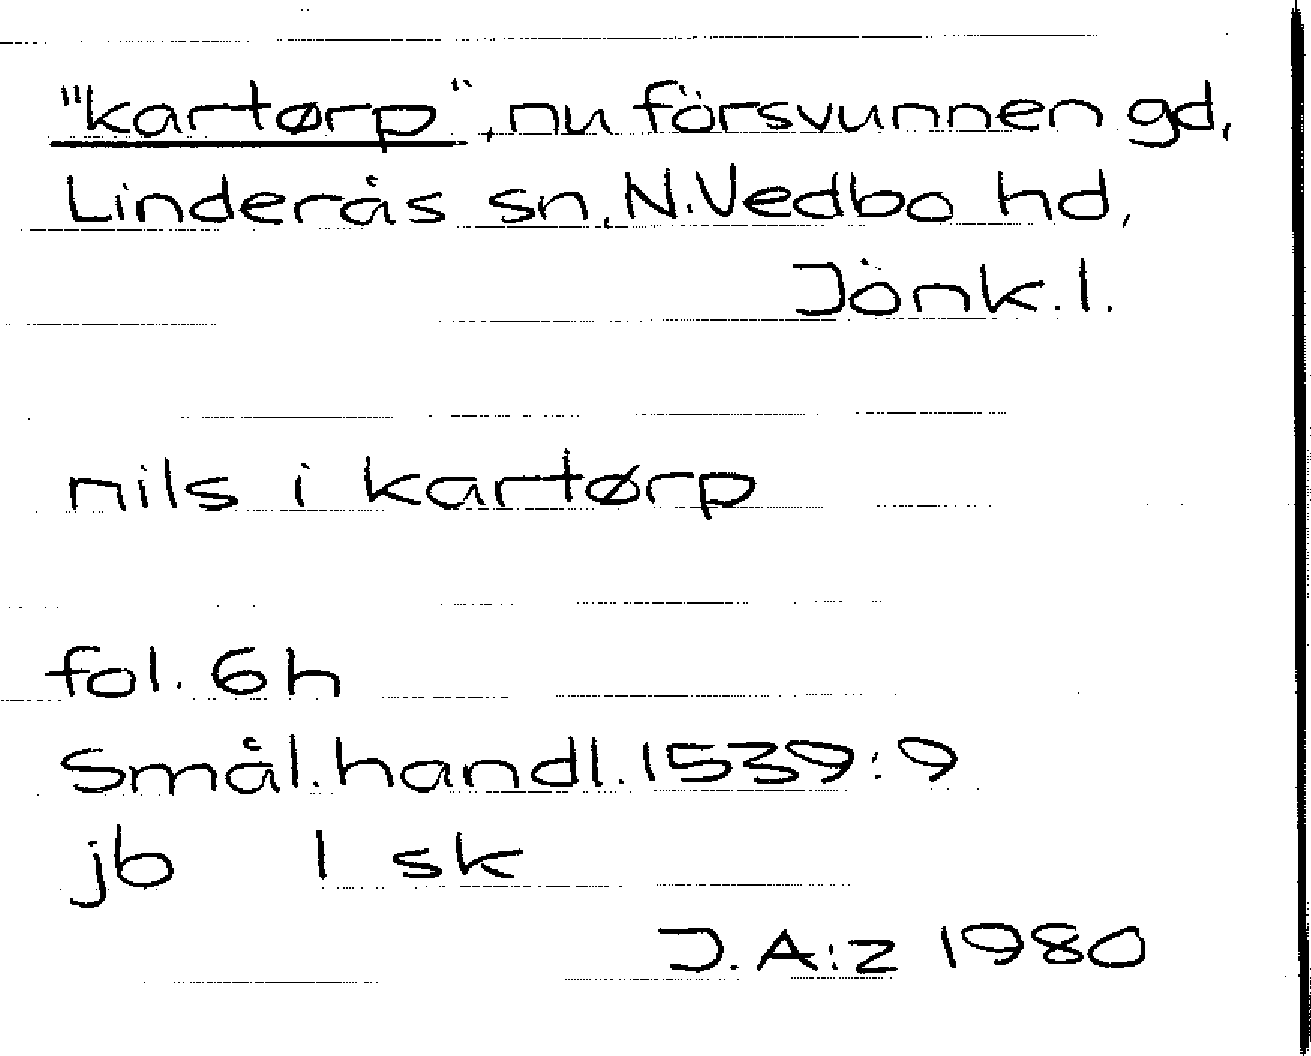 "kartørp", nu försvunnen gd,
Linderås sn, N. Vedbo hd,
Jönk. l.
nils i kartørp
fol. 6h
Smål. handl. 1539:9
jb 1 sk
J. A:z 1980